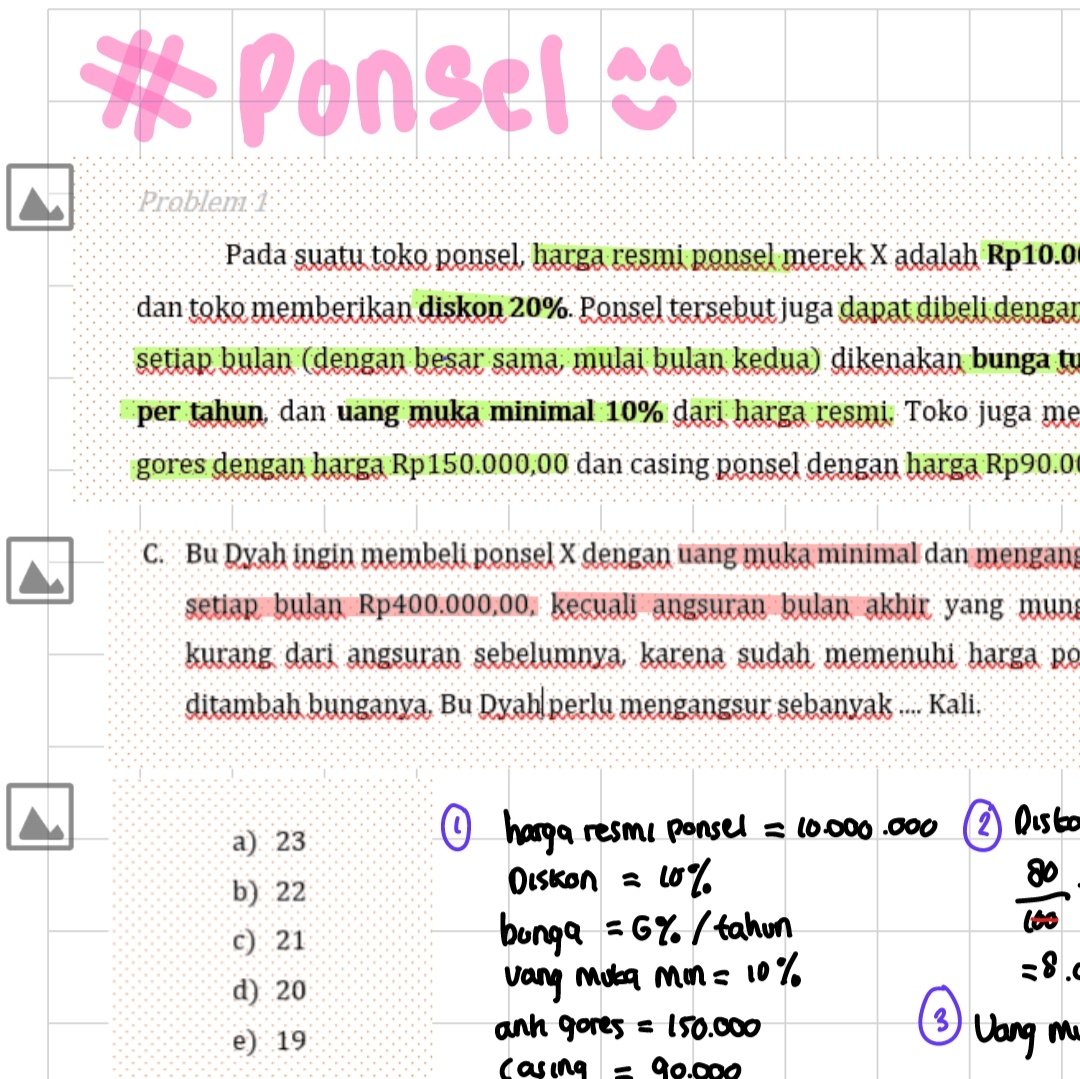 #Ponsel
Problem 1
Pada suatu toko ponsel, harga resmi ponsel merek X adalah Rp10.00
dan toko memberikan diskon 20%. Ponsel tersebut juga dapat dibeli dengan
setiap bulan (dengan besar sama, mulai bulan kedua) dikenakan bunga tu
per tahun, dan uang muka minimal 10% dari harga resmi. Toko juga me
gores dengan harga Rp150.000,00 dan casing ponsel dengan harga Rp90.00
C. Bu Dyah ingin membeli ponsel X dengan uang muka minimal dan mengang
setiap bulan Rp400.000,00, kecuali angsuran bulan akhir yang mung
kurang dari angsuran sebelumnya, karena sudah memenuhi harga po
ditambah bunganya. Bu Dyah perlu mengangsur sebanyak .... Kali.
a) 23
b) 22
c) 21
d) 20
e) 19
1 harga resmi ponsel = 10.000.000
Diskon = 10%
bunga = 6% / tahun
Uang muka min = 10%
anti gores = 150.000
Casing = 90.000
2 Disko
80
100
= 8.0
3 Uang mu